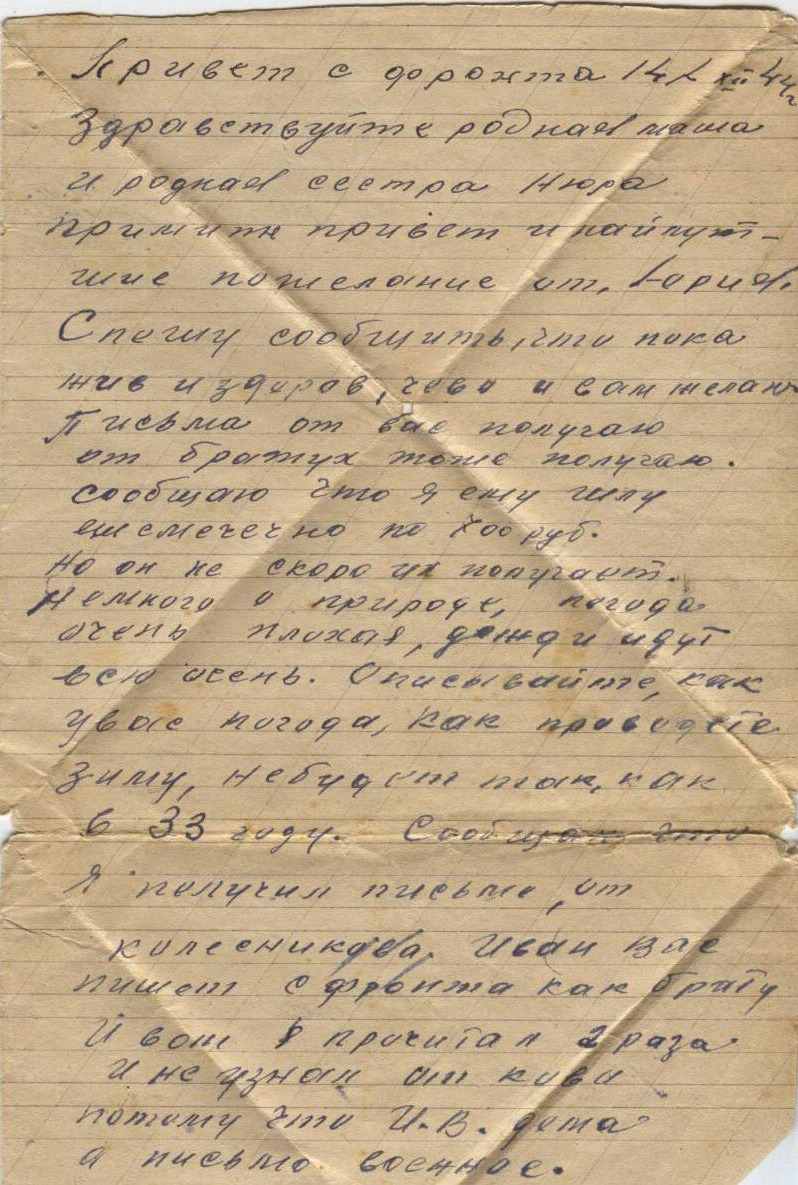 Привет с форонта 14 XII 44г
Здравствуйте родная маша
и родная сестра Нюра
примите привет и найлут-
шие пожелание от, Бориса.
Спешу сообщить, что пока
жив и здоров, чево и вам желаю
Письма от вас получаю
от братух тоже получаю.
сообщаю что я ему шлю
ежемечечно по 700 руб.
Но он не скоро их получает.
Немного о природе, погода
очень плохая, дожди идут
всю осень. Описывайте, как
у вас погода, как проводете
зиму, небудет так, как
в 33 году. Сообщаю что
я получил письмо, от
колесникова. Иван Вас
пишет с фронта как брату
И вот я прочитал 2 раза
И не узнал от ково
потому что И.В. дома
а письмо военное.